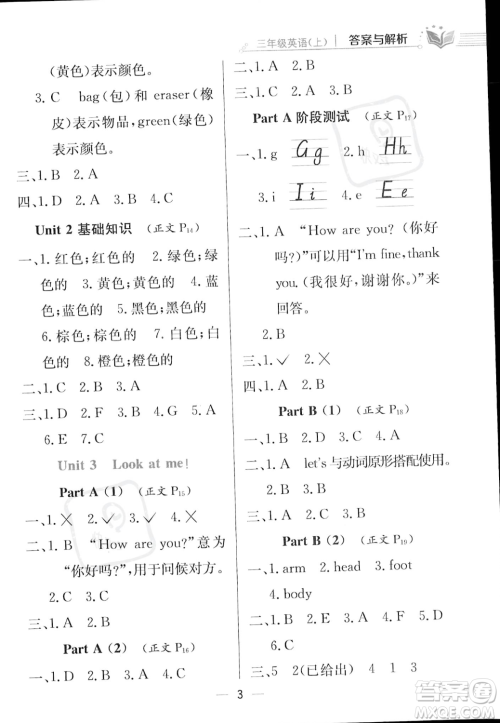 三年级英语(上) 答案与解析
(黄色)表示颜色。
3. C bag(包)和 eraser(橡
皮)表示物品,green(绿色)
表示颜色。
三、1. B 2. A
四、1. D 2. A 3. B 4. C
Unit 2 基础知识 (正文 P14)
一、1. 红色;红色的 2. 绿色;绿
色的 3. 黄色;黄色的 4. 蓝
色;蓝色的 5. 黑色;黑色的
6. 棕色;棕色的 7. 白色;白
色的 8. 橙色;橙色的
二、1. C 2. B 3. A
三、1. D 2. B 3. A 4. C 5. F
6. E 7. G
Unit 3 Look at me!
Part A (1) (正文 P15)
一、1. ✗ 2. ✓ 3. ✓ 4. ✗
二、1. B “How are you?”意为
“你好吗?”,用于问候对方。
2. C 3. A
三、1. C 2. B 3. A
Part A (2) (正文 P16)
一、1. B 2. A 3. C 4. D
二、1. A 2. B 3. C
三、1. C 2. D 3. A 4. B
Part A 阶段测试 (正文 P17)
一、1. g Gg 2. h Hh
3. i Ii 4. e Ee
二、1. A “How are you? (你好
吗?)”可以用“I'm fine, thank
you. (我很好,谢谢你。)”来
回答。
2. B
三、1. ✓ 2. ✗
四、1. A 2. B
Part B (1) (正文 P18)
一、1. B 2. A 3. C
二、1. A let's 与动词原形搭配使用。
2. A 3. B
Part B (2) (正文 P19)
一、1. arm 2. head 3. foot
4. body
二、1. A 2. C 3. B
三、5 2(已给出) 4 1 3
3